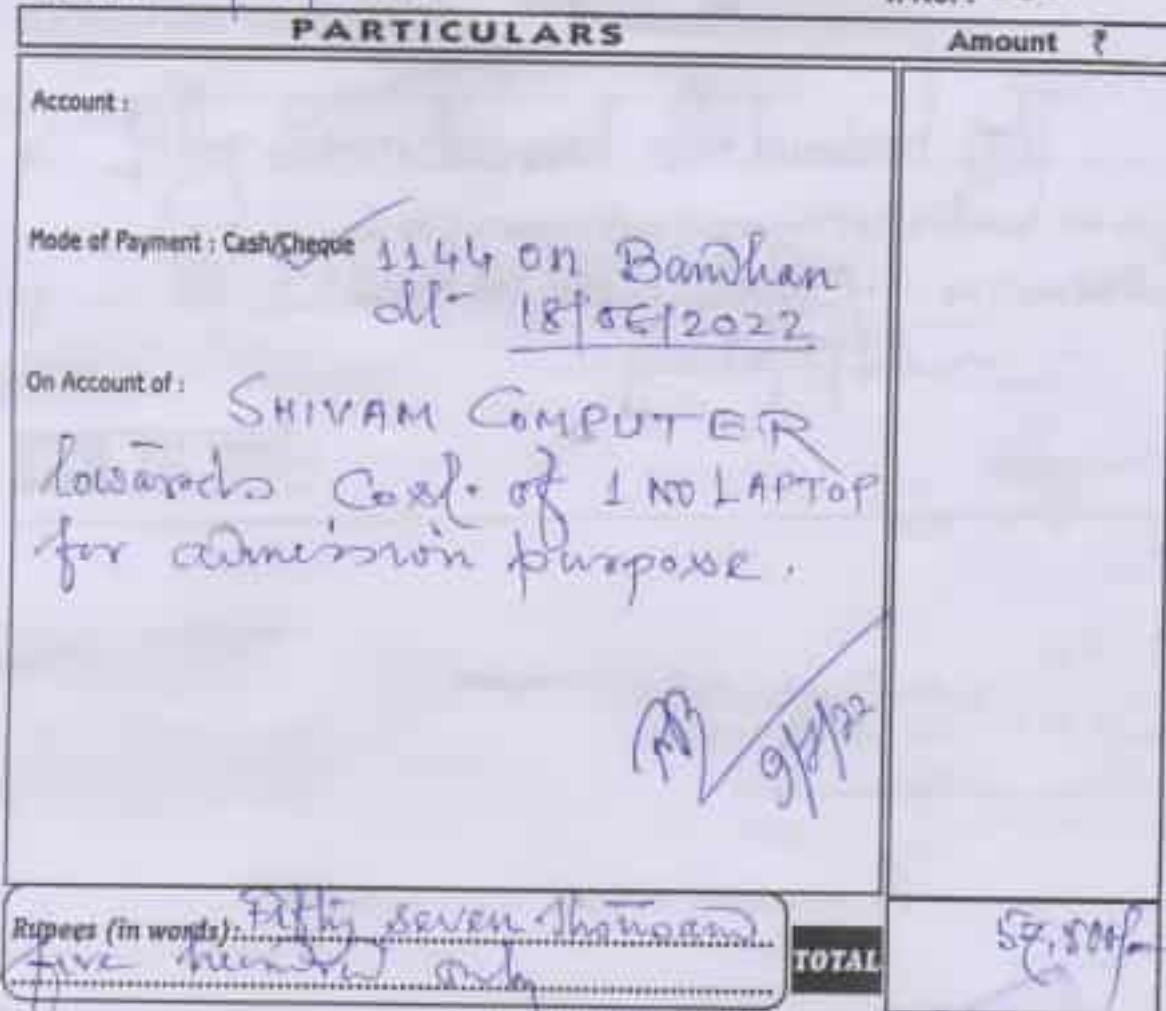 PARTICULARS
Amount ₹
Account :
Mode of Payment : Cash/Cheque 1144 on Bandhan
dt- 18/06/2022
On Account of :
SHIVAM COMPUTER
towards Cost of 1 NO LAPTOP
for admission purpose.
Rupees (in words): Fifty seven thousand
five hundred only
TOTAL
57,500/-